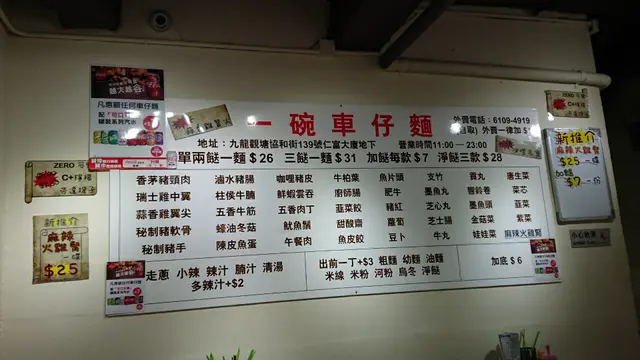 一碗車仔麵
外賣電話：6109-4919
外賣一律加$1
地址：九龍觀塘協和街139號仁富大廈地下 營業時間11:00 — 23:00
單兩餸一麵$26 三餸一麵$31 加餸每款$7 淨餸三款$28
香茅豬頸肉 滷水豬腸 咖哩豬皮 牛柏葉 魚片頭 支竹 貢丸 唐生菜
瑞士雞中翼 柱侯牛腩 鮮蝦雲吞 廚師腸 肥牛 墨魚丸 蟹籽卷 菜芯
蒜香雞翼尖 五香牛筋 五香肉丁 韮菜餃 豬紅 芝心丸 墨魚頭 韮菜
秘制豬軟骨 蠔油冬菇 魷魚鬚 甜酸齋 蘿蔔 芝士腸 金菇菜 紫菜
秘制豬手 陳皮魚蛋 午餐肉 魚皮餃 豆卜 牛丸 娃娃菜 麻辣火雞腎
走蔥 小辣 辣汁 腩汁 清湯
多辣汁+$2
出前一丁+$3 粗麵 幼麵 油麵
米線 米粉 河粉 烏冬 淨餸
加底$6
凡惠顧任何車仔麵
ZERO
C+檸檬
新推介
麻辣
火雞腎
一碗
$25
ZERO
C+檸檬
新推介
麻辣火雞腎
$25一碗
加麵
$7一份
小心地滑